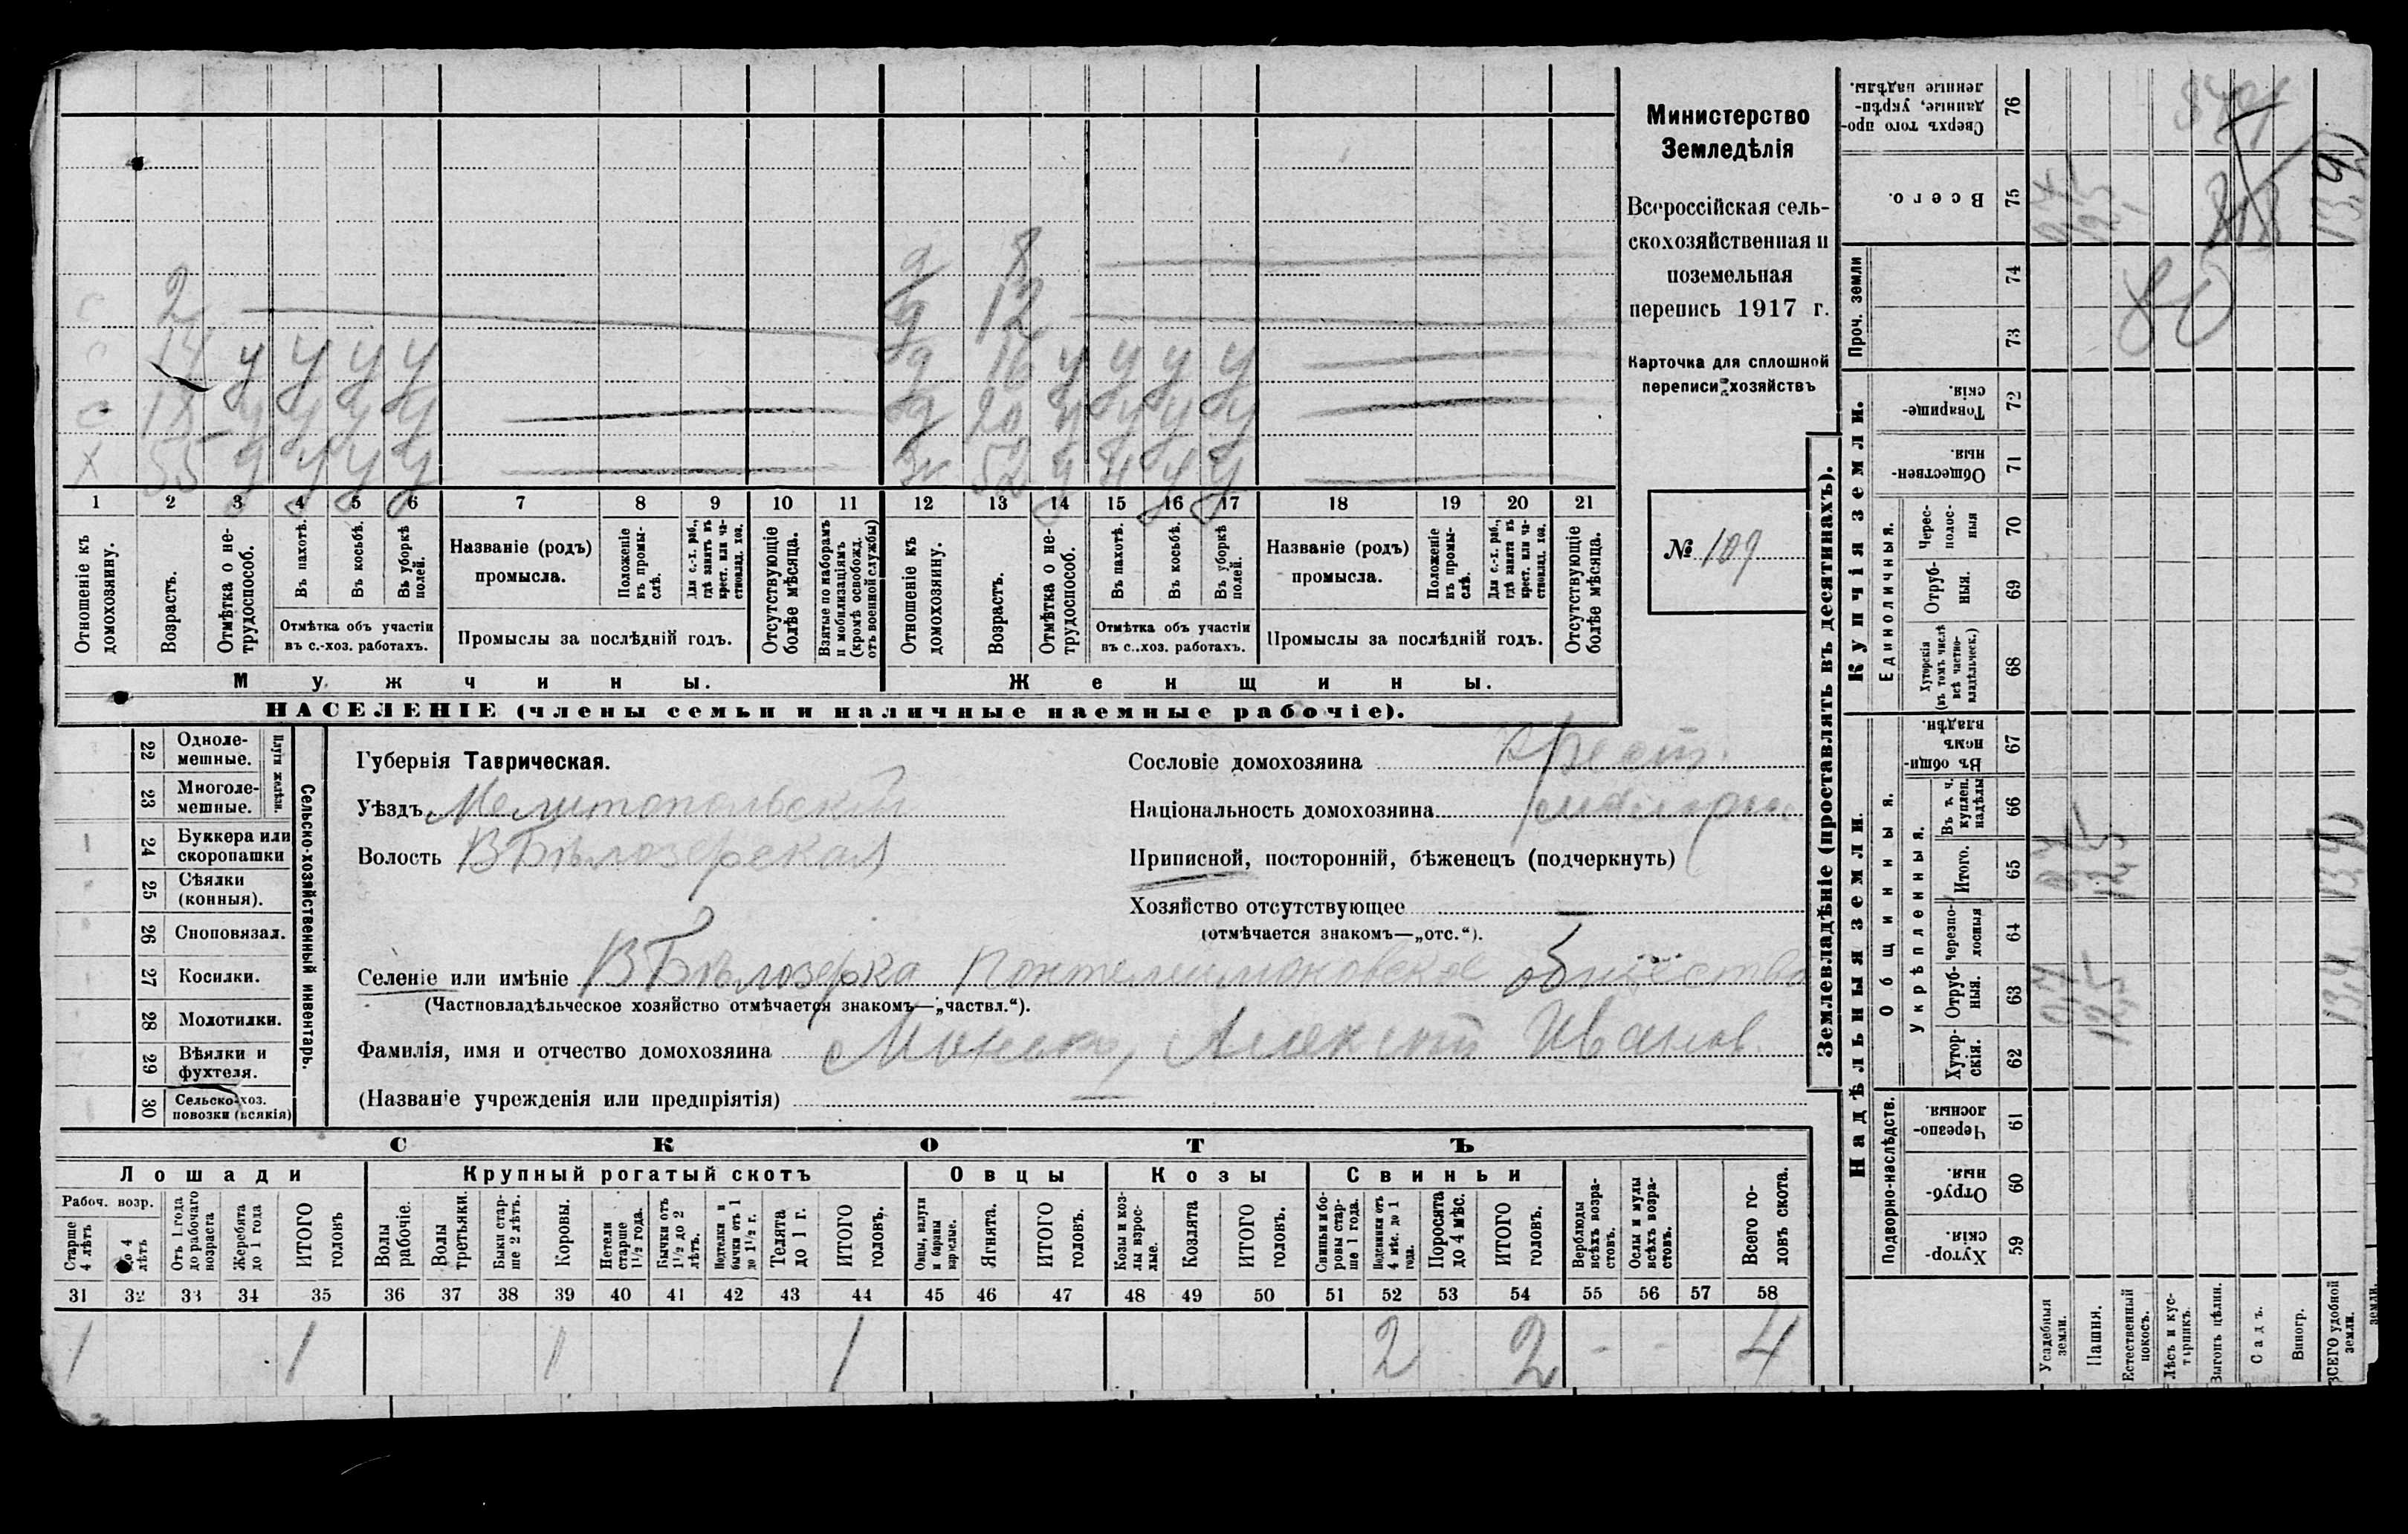 Министерство
Земледѣлія
Всероссійская сель-
скохозяйственная и
поземельная
перепись 1917 г.
Карточка для сплошной
переписи хозяйствъ
№ 109
с 2
с 14 у у у у
с 18 у у у у
х 55 у у у у
д 8
д 12
д 16 у у у у
д 20 у у у у
ж 52 у у у у
1 2 3 4 5 6 7 8 9 10 11 12 13 14 15 16 17 18 19 20 21
Отношеніе къ домохозяину.
Возрастъ.
Отмѣтка о не-
трудоспособ.
Въ пахотѣ.
Въ косьбѣ.
Въ уборкѣ полей.
Отмѣтка объ участіи
въ с.-хоз. работахъ.
Названіе (родъ)
промысла.
Положеніе въ промы-
слѣ.
Для с.-х. раб., гдѣ занятъ въ крест. или ча-
стновлад. хоз.
Промыслы за послѣдній годъ.
Отсутствующіе болѣе мѣсяца.
Взятые по наборамъ и мобилизаціямъ (кромѣ освобожд. отъ военной службы)
Отношеніе къ домохозяину.
Возрастъ.
Отмѣтка о не-
трудоспособ.
Въ пахотѣ.
Въ косьбѣ.
Въ уборкѣ полей.
Отмѣтка объ участіи
въ с.-хоз. работахъ.
Названіе (родъ)
промысла.
Положеніе въ промы-
слѣ.
Для с.-х. раб., гдѣ занята въ крест. или ча-
стновлад. хоз.
Промыслы за послѣдній годъ.
Отсутствующіе болѣе мѣсяца.
Мужчины.
Женщины.
НАСЕЛЕНІЕ (члены семьи и наличные наемные рабочіе).
22 Одноле-
мешные.
23 Многоле-
мешные.
Плуги желѣзн.
24 Буккера или
скоропашки
25 Сѣялки
(конныя).
26 Сноповязал.
27 Косилки.
28 Молотилки.
29 Вѣялки и
фухтеля.
30 Сельско-хоз.
повозки (всякія)
Сельско-хозяйственный инвентарь.
Губернія Таврическая.
Уѣздъ Мелитопольскій
Волость В Бѣлозерская
Селеніе или имѣніе В Бѣлозерка Пантелимоновское общество
(Частновладѣльческое хозяйство отмѣчается знакомъ—„частвл.“).
Фамилія, имя и отчество домохозяина Алексѣй Иванов.
(Названіе учрежденія или предпріятія)
Сословіе домохозяина крест.
Національность домохозяина
Приписной, посторонній, бѣженецъ (подчеркнуть)
Хозяйство отсутствующее —
(отмѣчается знакомъ—„отс.“).
СКОТЪ
Лошади
Крупный рогатый скотъ
Овцы
Козы
Свиньи
Рабоч. возр.
Старше 4 лѣтъ
До 4 лѣтъ
Отъ 1 года до рабочаго возраста
Жеребята до 1 года
ИТОГО головъ
Волы рабочіе.
Волы третьяки.
Быки стар-
ше 2 лѣтъ.
Коровы.
Нетели старше 1½ года.
Бычки отъ 1½ до 2 лѣтъ.
Подтелки и бычки отъ 1 до 1½ г.
Телята до 1 г.
ИТОГО головъ.
Овцы, валухи и бараны взрослые.
Ягнята.
ИТОГО головъ.
Козы и коз-
лы взрос-
лые.
Козлята
ИТОГО головъ.
Свиньи и бо-
ровы стар-
ше 1 года.
Подсвинки отъ 4 мѣс. до 1 года.
Поросята до 4 мѣс.
ИТОГО головъ.
Верблюды всѣхъ возра-
стовъ.
Ослы и мулы всѣхъ возра-
стовъ.
Всего го-
ловъ скота.
31 32 33 34 35 36 37 38 39 40 41 42 43 44 45 46 47 48 49 50 51 52 53 54 55 56 57 58
1 1 1 1 2 2 - - 4
Землевладѣніе (проставлять въ десятинахъ).
Купчія земли.
Надѣльныя земли.
Проч. земли
Единоличныя.
Общинныя.
Укрѣпленныя.
Подворно-наслѣдств.
Сверхъ того про-
данные, укрѣп-
ленные надѣлы. 76
Всего. 75
74
73
Товарище-
скія. 72
Обществен-
ныя. 71
Черес-
полос-
ныя 70
Отруб-
ныя. 69
Хуторскія (въ томъ числѣ всѣ частно-
владѣльческ.) 68
Въ общин-
номъ владѣн. 67
Въ т. ч. куплен. надѣлы 66
Итого. 65
Черезпо-
лосныя 64
Отруб-
ныя. 63
Хутор-
скія. 62
Черезпо-
лосныя. 61
Отруб-
ныя. 60
Хутор-
скія. 59
Усадебныя земли.
Пашня.
Естественный покосъ.
Лѣсъ и кус-
тарникъ.
Выгонъ цѣлин.
Садъ.
Виногр.
ВСЕГО удобной земли.
земли.
12,5
12,5
12,5
13,4